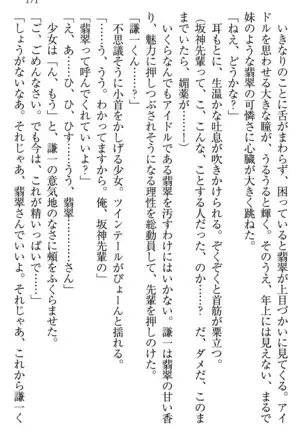 171
いきなりのことに対応できず、困っていると翡翠
ドルを思わせる大きな瞳が、うるうると輝く。そのうえ、年上には見えない、まるで
妹のような翡翠の可憐さに心臓が大きく跳ねた。
「ねえ、どうかな?」
耳もとに、生温かな吐息が吹きかけられる。ぞくぞくと首筋が粟立つ。
(坂神先輩って、こ、こんな、こと する人だった、のか……? だ、ダメだ、このま
までいたら、媚薬が……)
いくらなんでもアイドルである翡翠を汚すわけにはいかない。謙一は翡翠の甘い香
り、魅力に押しつぶされそうになる理性を総動員して、先輩を押しのけた。
「謙一くん……?」
「っ……うう。わかってますから。俺、坂神先輩の」
不思議そうに小首をかしげる少女。ツインテールがぴょーんと揺れる。
「翡翠って呼んでくれないの?」
「え、あ……ひ、ひ、ひす……うう、翡翠…………さん」
少女は「ん、もう」と、謙一の意気地のなさに頬をふくらませた。
「ご、ごめんなさい。でも今、これが精いっぱいで……」
「しょうがないなあ。それじゃあ、翡翠さんでいいよ。それじゃあ、これから謙一く